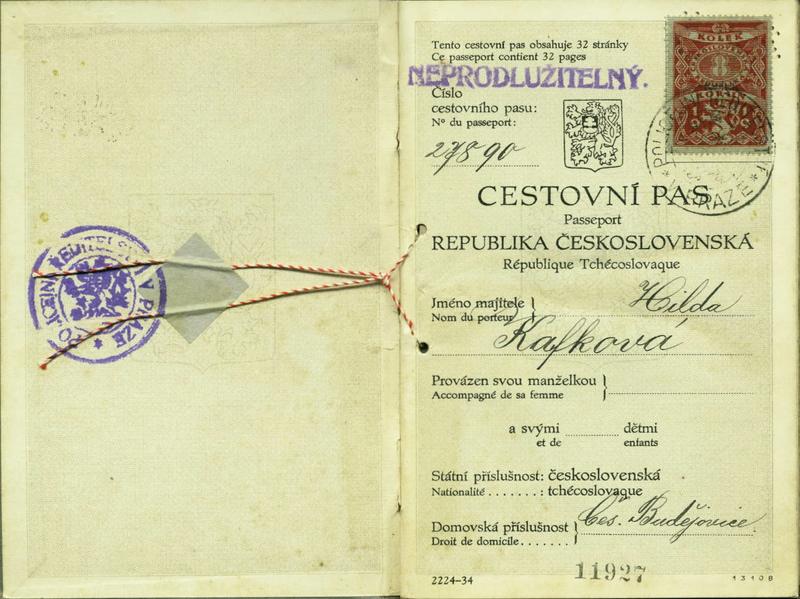 POLICEJNÍ ŘEDITELSTVÍ V PRAZE
Tento cestovní pas obsahuje 32 stránky
Ce passeport contient 32 pages
NEPRODLUŽITELNÝ.
Číslo
cestovního pasu:
Nº du passeport:
27890
KOLEK
8
V PRAZE
CESTOVNÍ PAS
Passeport
REPUBLIKA ČESKOSLOVENSKÁ
République Tchécoslovaque
Jméno majitele
Nom du porteur
Hilda
Kafková
Provázen svou manželkou
Accompagné de sa femme
a svými dětmi
et de enfants
Státní příslušnost: československá
Nationalité . . . . . . . : tchécoslovaque
Domovská příslušnost
Droit de domicile. . . . . . .
Čes. Budějovice.
11927
2224–34
13108